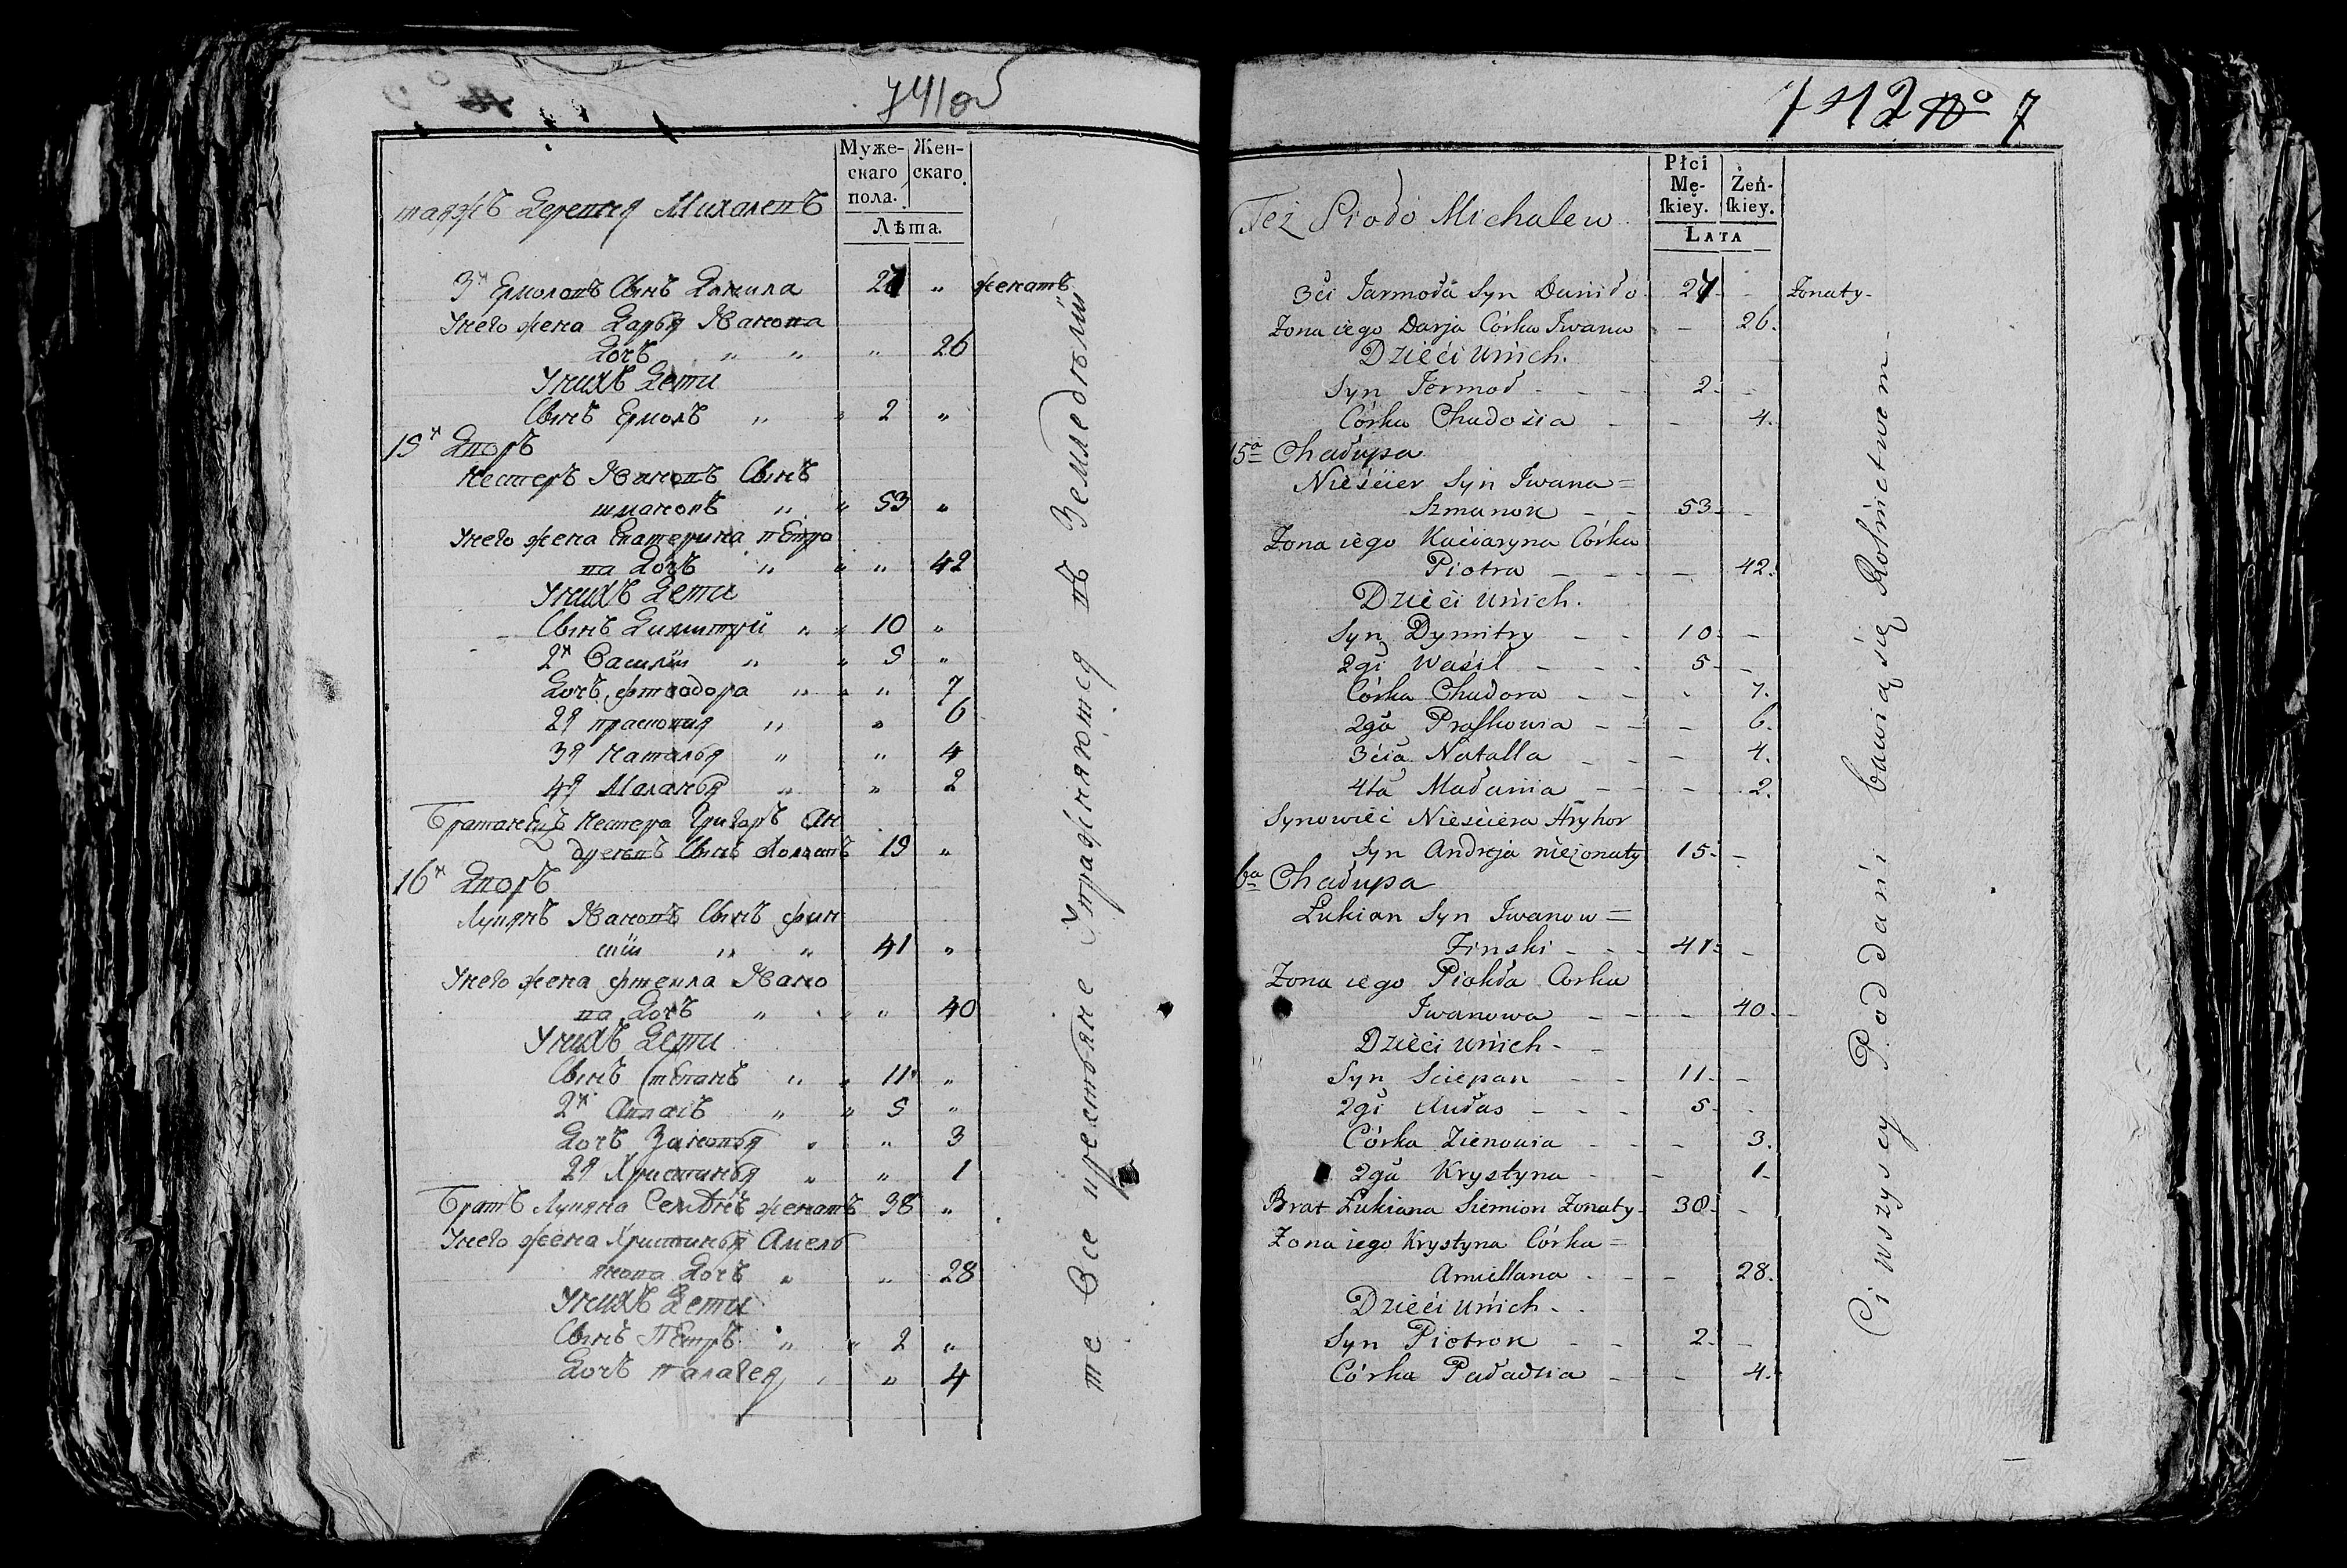 741об
Муже- Жен-
скаго скаго
пола.
Лѣта.
таяжъ Деревня Михалевъ
3й Ермоловъ Сынъ Данила 27 " женатъ
Унего жена Дарья Иванова
Дочъ " " " 26
Унихъ Дети
Сынъ Ермолъ " " 2 "
15й Дворъ
Нестеръ Ивановъ Сынъ
шманокъ " " 53 "
Унего жена Екатерина пЕтро
ва Дочъ " " " 42
Унихъ Дети
Сынъ Димитрий " " 10 "
2й Василій " " 5 "
Дочъ фтеодора " " " 7
2я прасковия " " 6
3я Наталья " " 4
4я Маланья " " 2
Братанецъ Нестера Григоръ Ан
дреевъ Сынъ Холастъ 15 "
16й Дворъ
Лукянъ Ивановъ Сынъ фин
скій " " 41 "
Унего жена фтекла Ивано
ва Дочъ " " " 40
Унихъ Дети
Сынъ стЕпанъ " " 11 "
2й Авласъ " " 5 "
Дочъ Зиновья " " 3
2я Христинья " " 1
Братъ Лукяна Семёнъ женатъ 38 "
Унего жена Христинья Амель
янова Дочъ " " 28
Унихъ Дети
Сынъ ПЕтръ " " 2 "
Дочъ палагея " " 4
те Все крестьяне Упражняются въ Земледелии
742 No 7
Płci
Mę- Żeń-
ſkiey. ſkiey.
LATA
Też Sioło Michalew
3ci Jarmoła Syn Daniło 27 - Żonaty-
Żona iego Darja Córka Iwana - 26.
Dzieci unich.
Syn Jermoł - - - 2 -
Córka Chudosia - - 4.
15a Chałupa
Nieścier Syn Iwana =
Szmanok - - 53 -
Żona iego Kaciaryna Córka
Piotra - - - - 42.
Dzieci unich.
Syn Dymitry - - 10 -
2gi Waśil - - - 5 -
Córka Chudora - - - 7.
2ga Praſkowia - - - 6.
3cia Natalla - - - 4.
4ta Małania - - - 2.
Synowiec Nieściera Hryhor
Syn Andreja nieżonaty 15 -
6a Chałupa
Łukian Syn Iwanow =
Finski - - - 41 -
Żona iego Piokła Corka
Iwanowa - - - 40.
Dzieci unich - -
Syn Sciepan - - 11 -
2gi Aułas - - - 5 -
Córka Zienowia - - - 3.
2ga Krystyna - - 1.
Brat Łukiana Siemion Żonaty - 38 -
Żona iego Krystyna Córka =
Amiellana - - - 28.
Dzieci unich - -
Syn Piotrok - - 2 -
Córka Paładzia - - 4.
Ci wszyscy Poddani bawią się Rolnictwem -